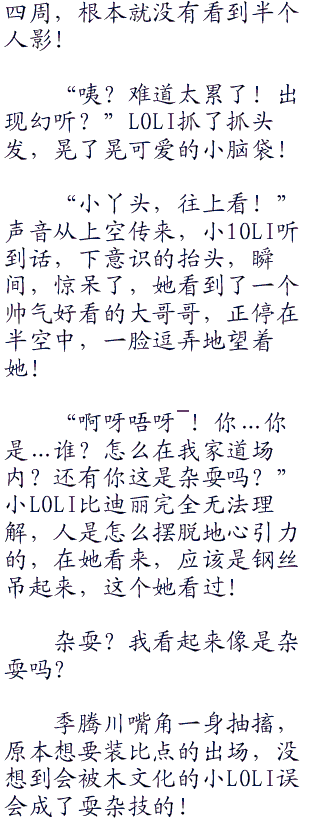 四周，根本就没有看到半个
人影！
“咦？难道太累了！出
现幻听？”LOLI抓了抓头
发，晃了晃可爱的小脑袋！
“小丫头，往上看！”
声音从上空传来，小lOLI听
到话，下意识的抬头，瞬
间，惊呆了，她看到了一个
帅气好看的大哥哥，正停在
半空中，一脸逗弄地望着
她！
“啊呀唔呀¯！你…你
是…谁？怎么在我家道场
内？还有你这是杂耍吗？”
小LOLI比迪丽完全无法理
解，人是怎么摆脱地心引力
的，在她看来，应该是钢丝
吊起来，这个她看过！
杂耍？我看起来像是杂
耍吗？
季腾川嘴角一身抽搐，
原本想要装比点的出场，没
想到会被木文化的小LOLI误
会成了耍杂技的！